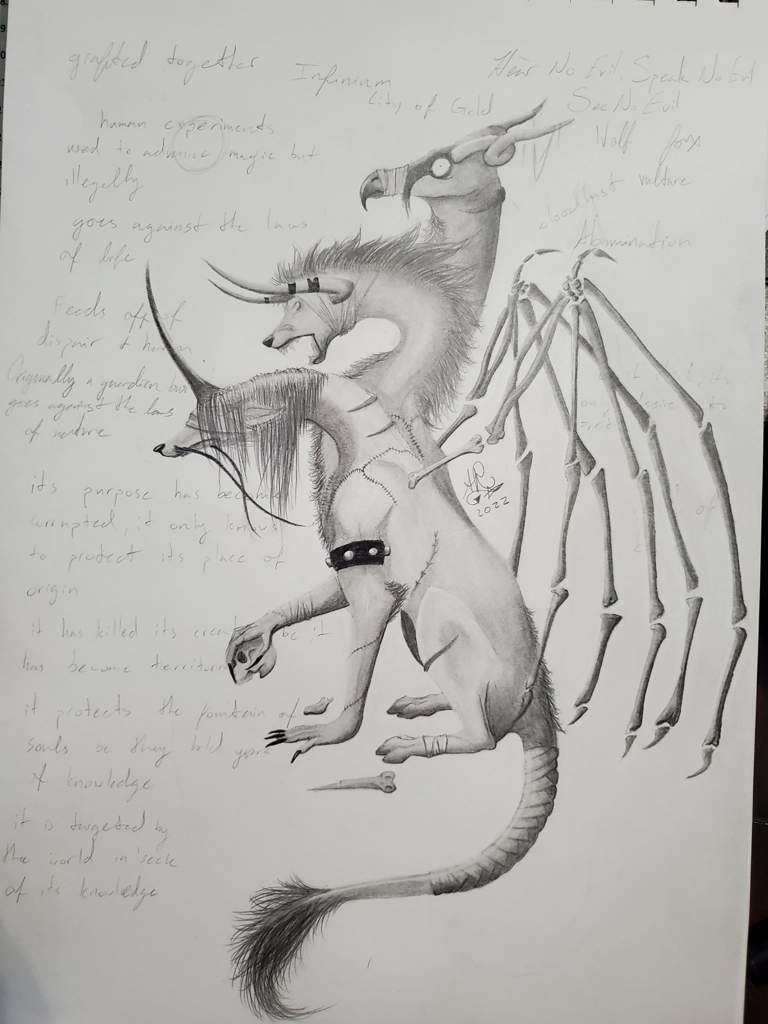 grafted together
Infinium
City of Gold
Hear No Evil, Speak No Evil
See No Evil
Wolf fox
bloodlust vulture
Abomination
human experiments
used to advance magic but
illegally
goes against the laws
of life
Feeds off of
dispair & human
Originally a guardian but
goes against the laws
of nature
its purpose has become
corrupted, it only knows
to protect its place of
origin
it has killed its be it
has become
it protects the fountain of
souls be they told years
of knowledge
it is targeted by
the world in seek
of its knowledge
2022